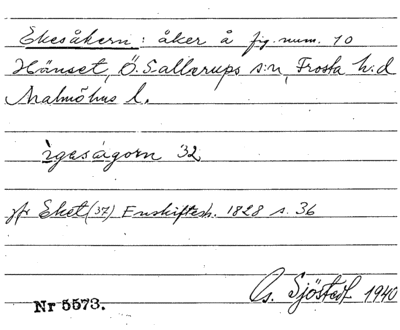 Ekesåkern: åker å fig. num. 10
Hänset, Ö. Sallerups s:n, Frosta h:d
Malmöhus l.
ìgasågorn 32
jfr Eket (37) Enskiftesh. 1828 s. 36
Nr 5573.
Gs. Sjöstedt 1940